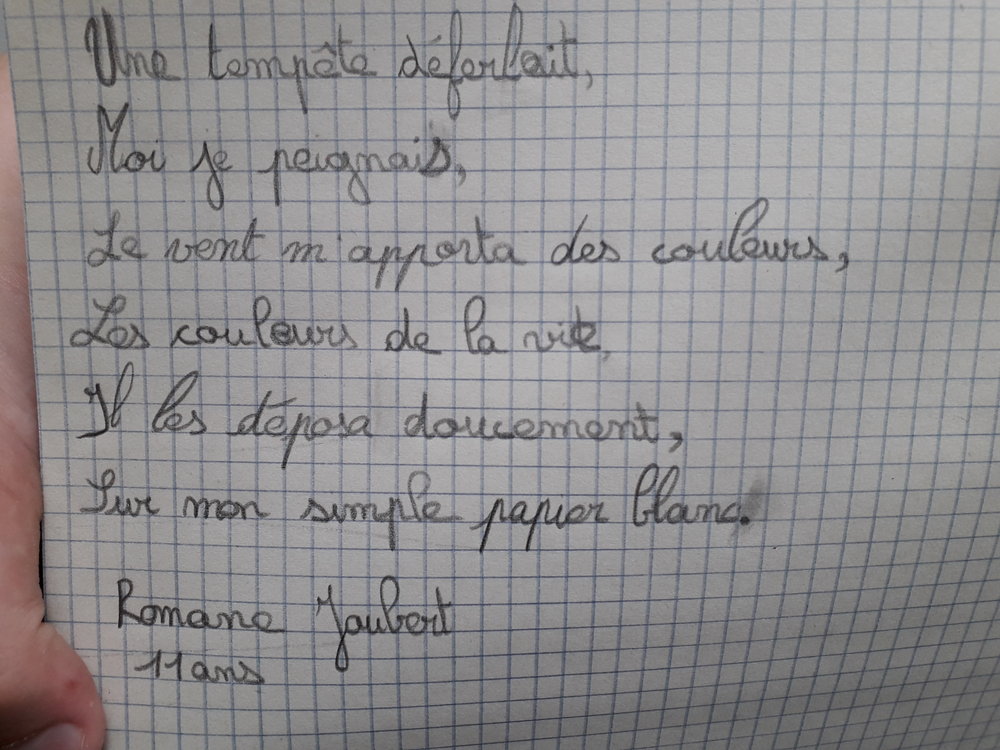 Une tempête déferlait,
Moi je peignais,
Le vent m'apporta des couleurs,
Les couleurs de la vie,
Il les déposa doucement,
Sur mon simple papier blanc.
Romane Joubert
11 ans